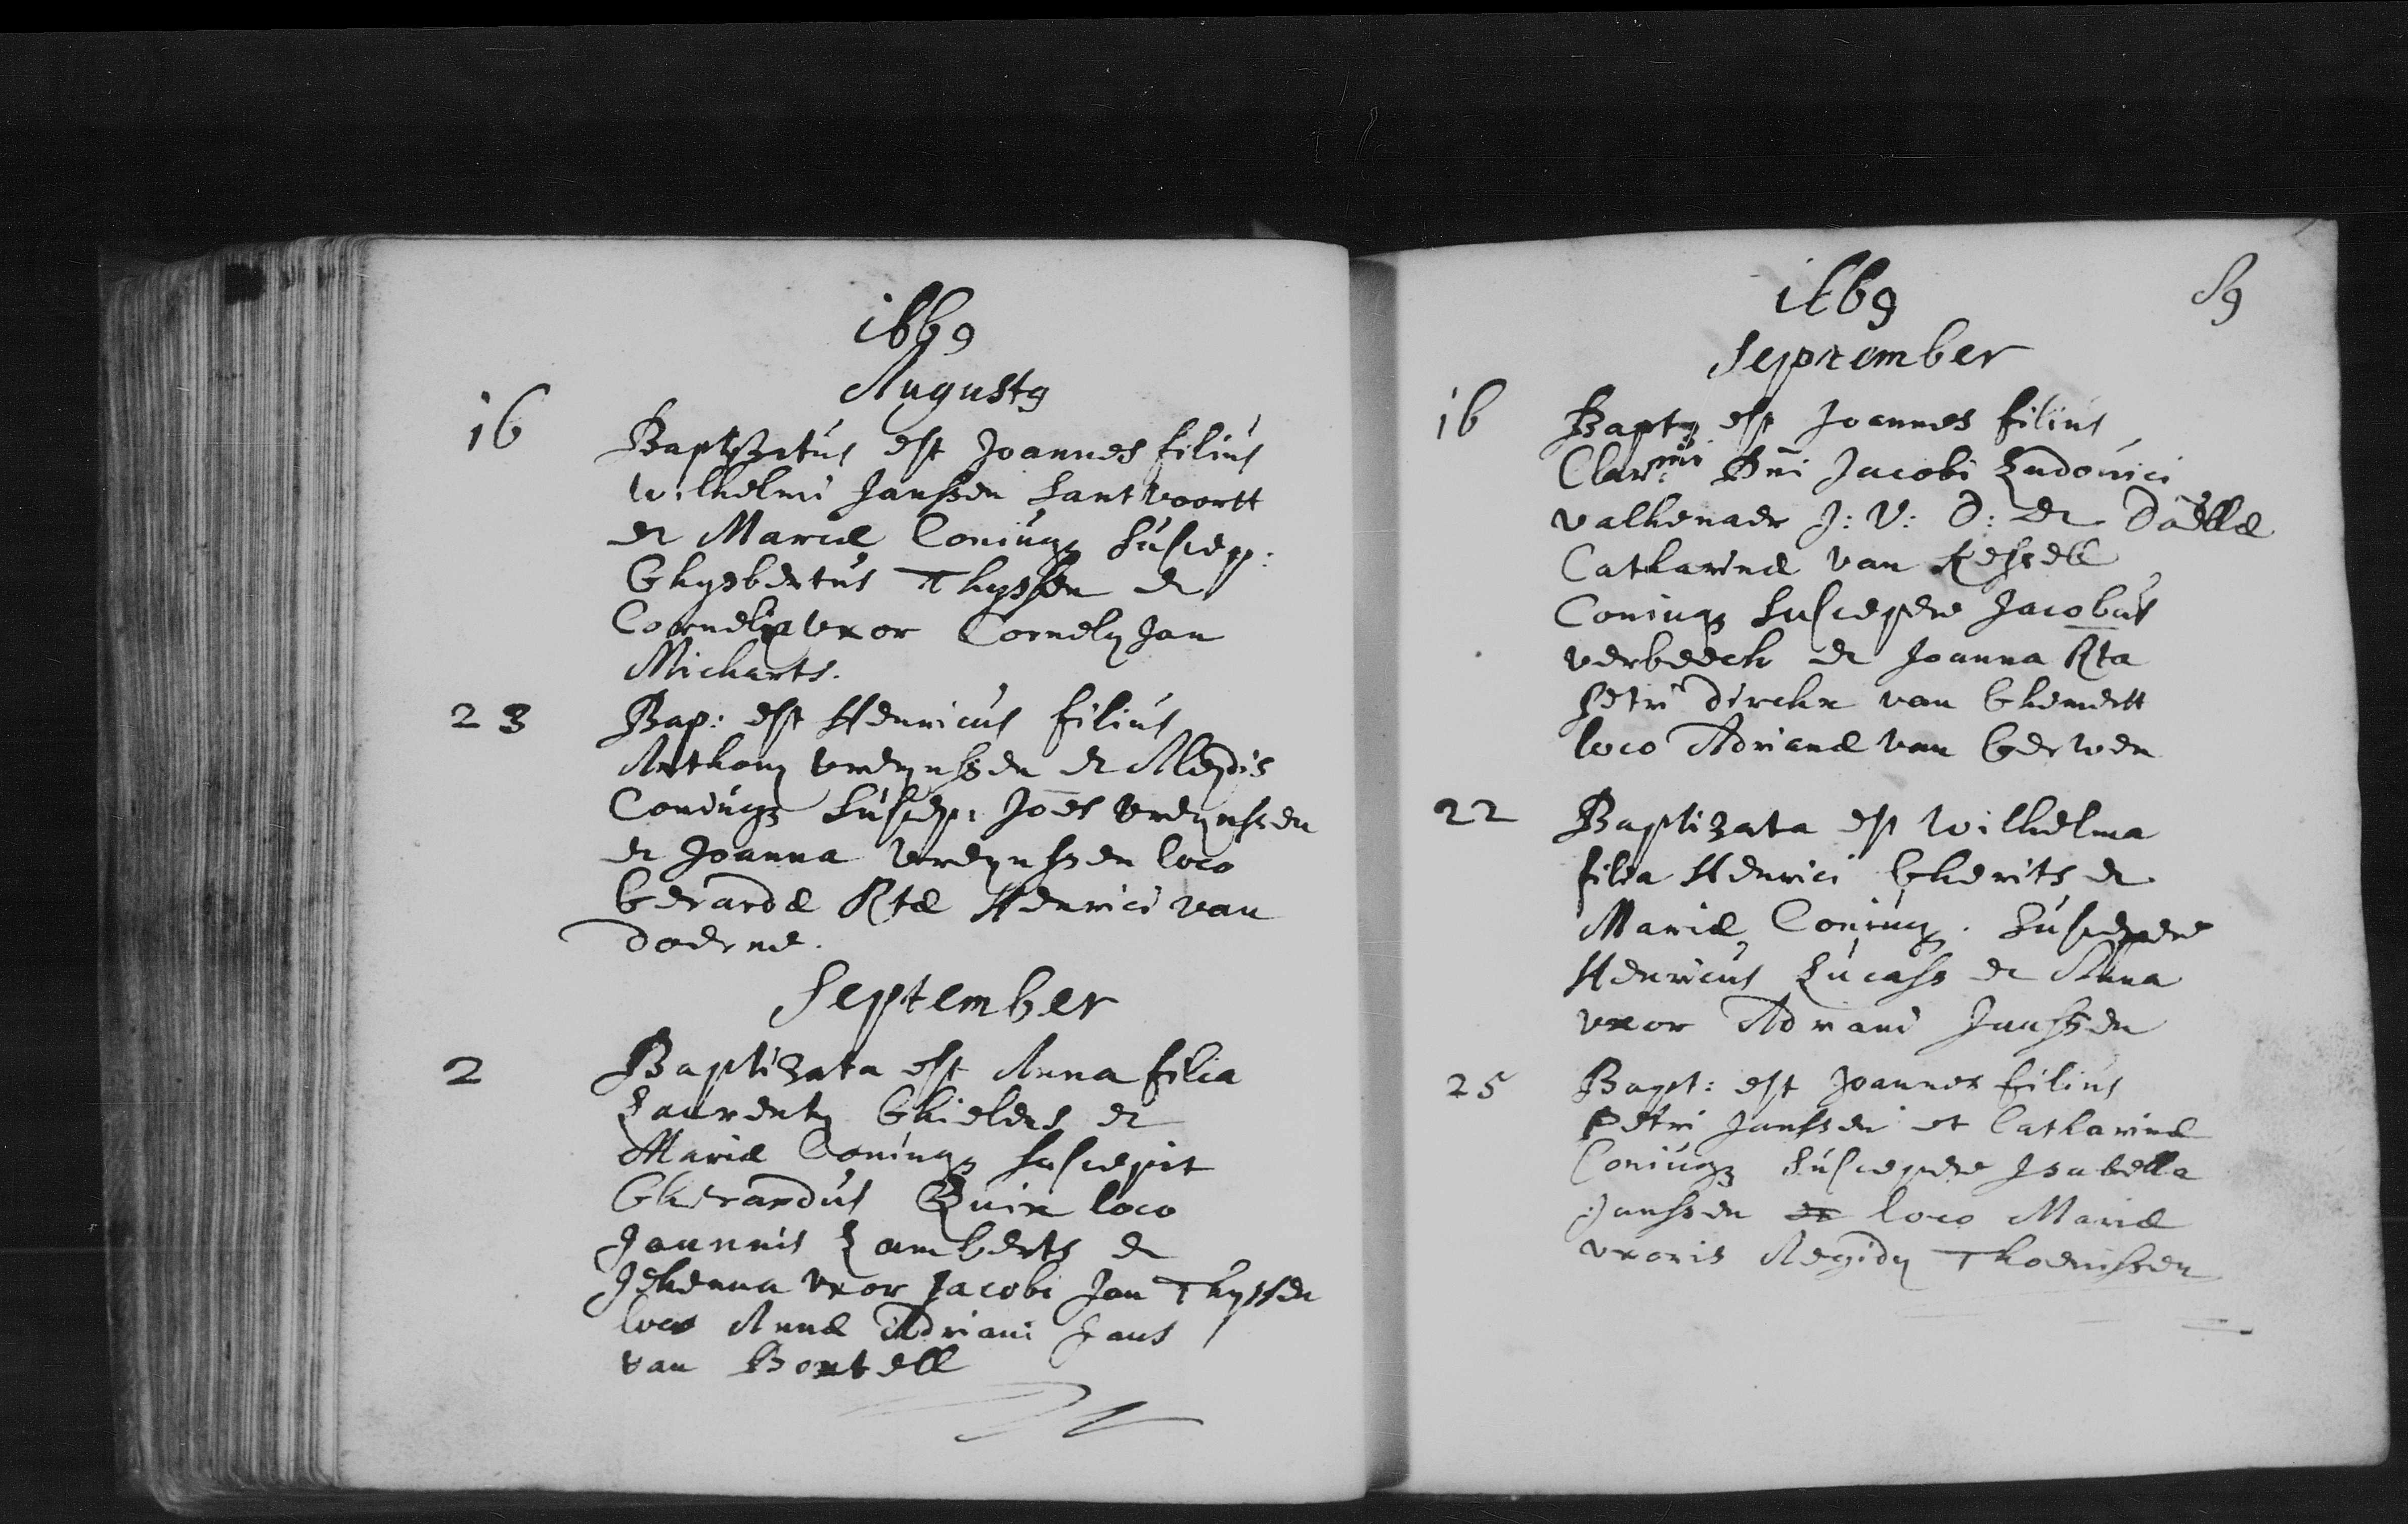 1669
Augustq
16 Baptizatus est Joannes filius
Wilhelmi Janssen Santvoortt
et Mariæ Coniugz Suscep:
Ghysbertus Thyssen et
Cornelia vxor Cornelÿ Jan
Micharts.
23 Bap: est Henricus filius
Anthonÿ vreÿnssen et Aleÿdis
Coniugz Suscep: Joēs vreÿnssen
et Joanna vreÿnssen loco
Gerardæ Rtæ Henrici van
doerne.
September
2 Baptizata est Anna filia
Laurentÿ Ghielens et
Mariæ Coniugz suscepit
Gherardus Quix loco
Joannis Lamberts et
Jehenna vxor Jacobi Jan Thyssen
loco Annæ Adriani Jans
van Boxtell
1669
89
September
16 Baptq est Joannes filius
Clarmi Dni Jacobi Ludovici
valkenaer J: V: D: et Dōellæ
Catharinæ van Kessell
Coniugz Suscepere Jacobus
verbeeck et Joanna Rta
Petri dirckx van Ghemertt
loco Adrianæ van Gerwen
22 Baptizata est Wilhelma
filia Henrici Gherits et
Mariæ Coniugz. Suscepere
Henricus Lucass et Anna
vxor Adriani Janssen
25 Bapt: est Joannes filius
Petri Janssen et Catharinæ
Coniugz Suscepere Isabella
Janssen et loco Mariæ
vxoris Aegidÿ Thoenissen